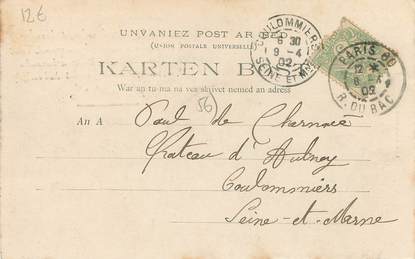 126
UNVANIEZ POST AR BED
(UNION POSTALE UNIVERSELLE)
KARTEN BOST
War an tu-ma na vez skrivet nemed an adress
56
An A
Paul de Charnacé
Château d'Aulnoy
Coulommiers
Seine-et-Marne
COULOMMIERS
8 30
9 -4
02
SEINE ET MNE
PARIS 80
12
02
R. DU BAC